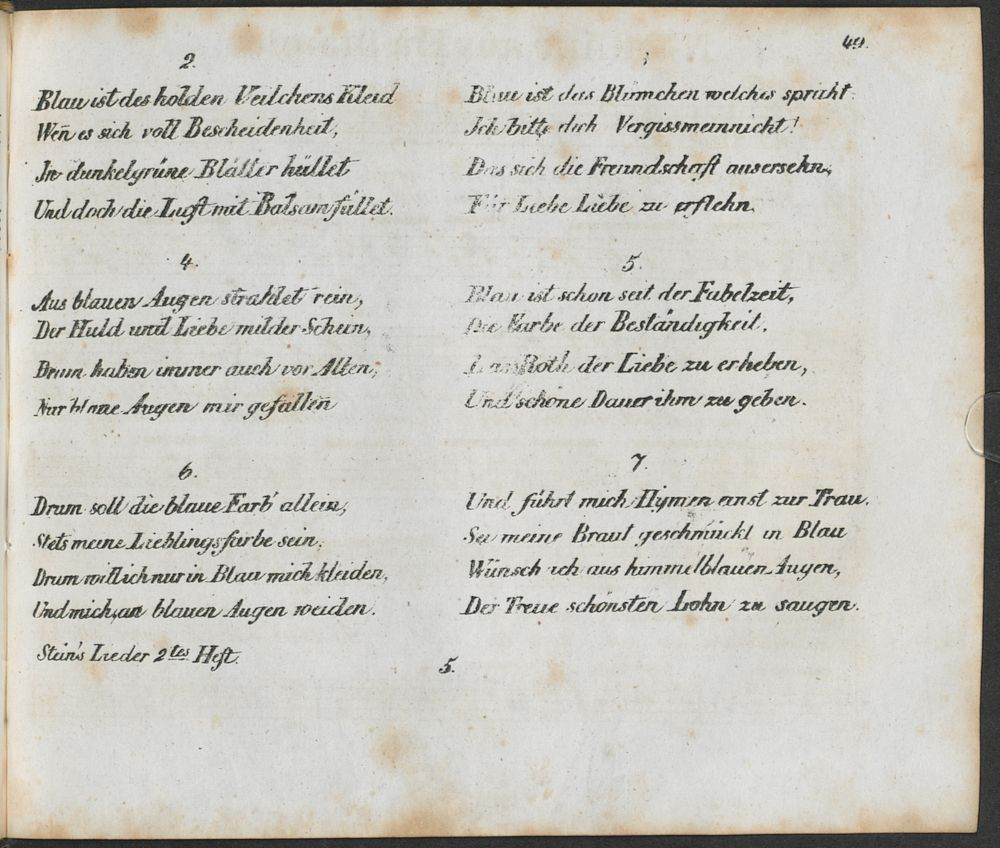 49.
2.
Blau ist des holden Veilchens Kleid
Wen̄ es sich voll Bescheidenheit,
In dunkelgrüne Blätter hüllet
Und doch die Luft mit Balsam füllet.
Blau ist das Blümchen welches spricht
Ich bitte dich Vergissmeinnicht!
Das sich die Freundschaft ausersehn,
Für Liebe Liebe zu erflehn.
4.
Aus blauen Augen strahlet rein,
Der Huld und Liebe milder Schein,
Drum haben immer auch vor Allen,
Nur blaue Augen mir gefallen
5.
Blau ist schon seit der Fabelzeit,
Die Farbe der Beständigkeit,
Roth der Liebe zu erheben,
Und schöne Dauer ihm zu geben.
6.
Drum soll die blaue Farb' allein,
Stets meine Lieblingsfarbe sein,
Drum will ich nur in Blau mich kleiden,
Und mich an blauen Augen weiden.
7.
Und führt mich Hymen einst zur Trau.
Sei meine Braut geschmückt in Blau
Wünsch ich aus himmelblauen Augen,
Der Treue schönsten Lohn zu saugen.
Stein's Lieder 2tes Heft.
5.